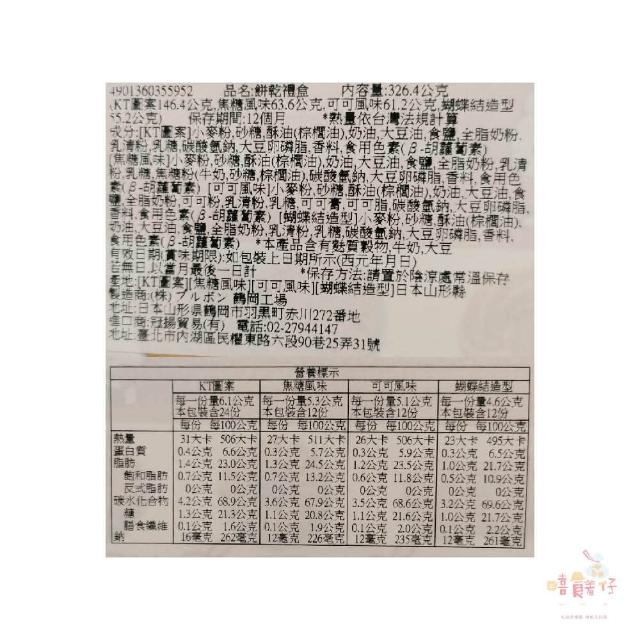 4901360355952 品名:餅乾禮盒 內容量:326.4公克
(KT圖案146.4公克,焦糖風味63.6公克,可可風味61.2公克,蝴蝶結造型
55.2公克) 保存期間:12個月 *熱量依台灣法規計算
成分:[KT圖案]小麥粉,砂糖,酥油(棕櫚油),奶油,大豆油,食鹽,全脂奶粉,
乳清粉,乳糖,碳酸氫鈉,大豆卵磷脂,香料,食用色素(β-胡蘿蔔素)
[焦糖風味]小麥粉,砂糖,酥油(棕櫚油),奶油,大豆油,食鹽,全脂奶粉,乳清
粉,乳糖,焦糖粉(牛奶,砂糖,棕櫚油),碳酸氫鈉,大豆卵磷脂,香料,食用色
素(β-胡蘿蔔素) [可可風味]小麥粉,砂糖,酥油(棕櫚油),奶油,大豆油,食
鹽,全脂奶粉,可可粉,乳清粉,乳糖,可可膏,可可脂,碳酸氫鈉,大豆卵磷脂,
香料,食用色素(β-胡蘿蔔素) [蝴蝶結造型]小麥粉,砂糖,酥油(棕櫚油),
奶油,大豆油,食鹽,全脂奶粉,乳清粉,乳糖,碳酸氫鈉,大豆卵磷脂,香料,
食用色素(β-胡蘿蔔素) *本產品含有麩質穀物,牛奶,大豆
有效日期(賞味期限):如包裝上日期所示(西元年月日)
若無日以當月最後一日計 *保存方法:請置於陰涼處常溫保存
產地:[KT圖案][焦糖風味][可可風味][蝴蝶結造型]日本山形縣
製造商:(株)ブルボン 鶴岡工場
地址:日本山形県鶴岡市羽黒町赤川272番地
進口商:冠揚貿易(有) 電話:02-27944147
地址:臺北市內湖區民權東路六段90巷25弄31號
營養標示
KT圖案 焦糖風味 可可風味 蝴蝶結造型
每一份量6.1公克 每一份量5.3公克 每一份量5.1公克 每一份量4.6公克
本包裝含24份 本包裝含12份 本包裝含12份 本包裝含12份
每份 每100公克 每份 每100公克 每份 每100公克 每份 每100公克
熱量 31大卡 506大卡 27大卡 511大卡 26大卡 506大卡 23大卡 495大卡
蛋白質 0.4公克 6.6公克 0.3公克 5.7公克 0.3公克 5.9公克 0.3公克 6.5公克
脂肪 1.4公克 23.0公克 1.3公克 24.5公克 1.2公克 23.5公克 1.0公克 21.7公克
飽和脂肪 0.7公克 11.5公克 0.7公克 13.2公克 0.6公克 11.8公克 0.5公克 10.9公克
反式脂肪 0公克 0公克 0公克 0公克 0公克 0公克 0公克 0公克
碳水化合物 4.2公克 68.9公克 3.6公克 67.9公克 3.5公克 68.6公克 3.2公克 69.6公克
糖 1.3公克 21.3公克 1.1公克 20.8公克 1.1公克 21.6公克 1.0公克 21.7公克
膳食纖維 0.1公克 1.6公克 0.1公克 1.9公克 0.1公克 2.0公克 0.1公克 2.2公克
鈉 16毫克 262毫克 12毫克 226毫克 12毫克 235毫克 12毫克 261毫克